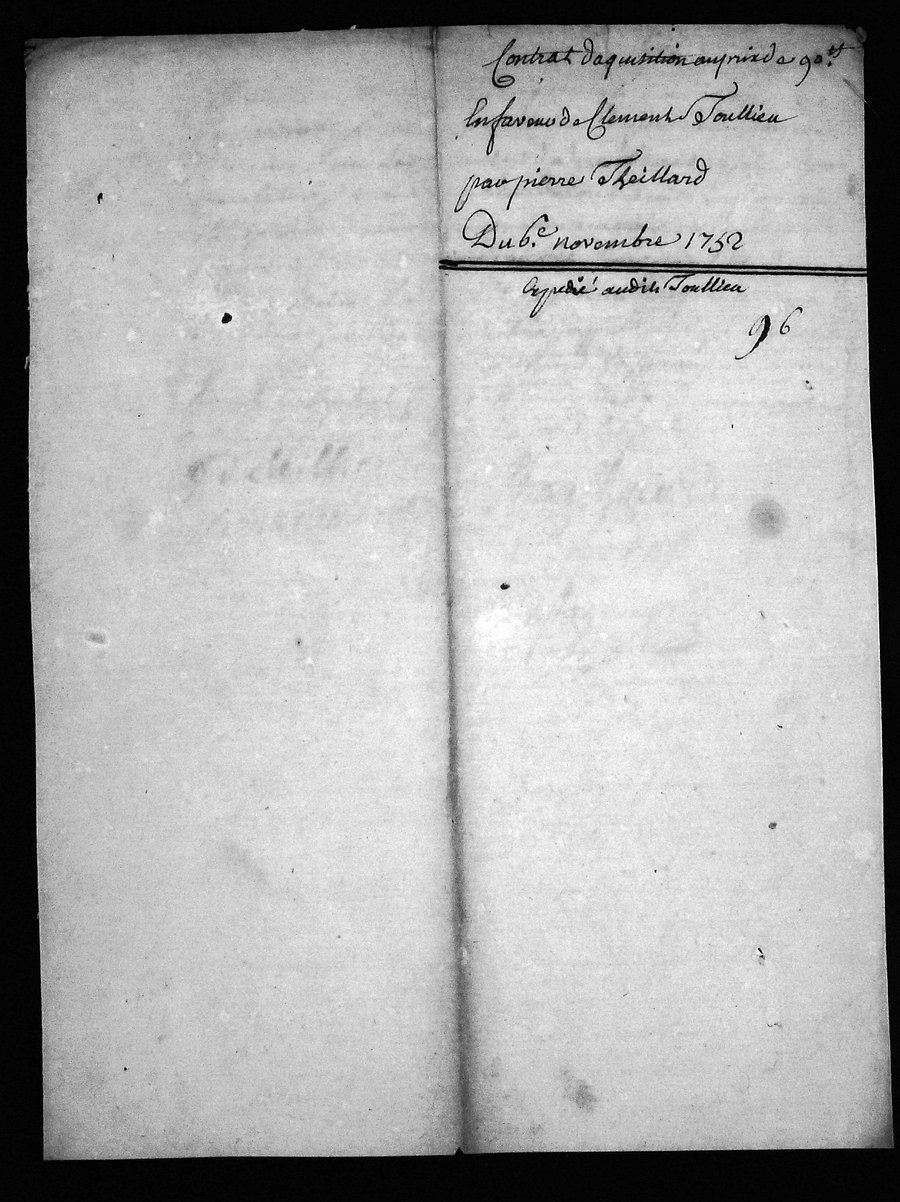 Contrat daquisition auprix de 90.tt
En faveur de Clement Toullieu
par pierre Theillard
Du 6.e novembre 1752
Expedié audit Toullieu
96